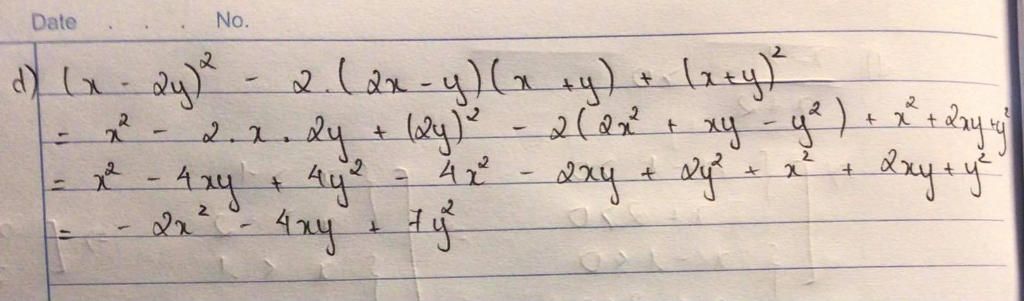 Date . . . . No.
d) (x - 2y)² - 2.(2x - y)(x + y) + (x+y)²
= x² - 2.x.2y + (2y)² - 2(2x² + xy - y²) + x² + 2xy+y²
= x² - 4xy + 4y² - 4x² - 2xy + 2y² + x² + 2xy + y²
= - 2x² - 4xy + 7y²